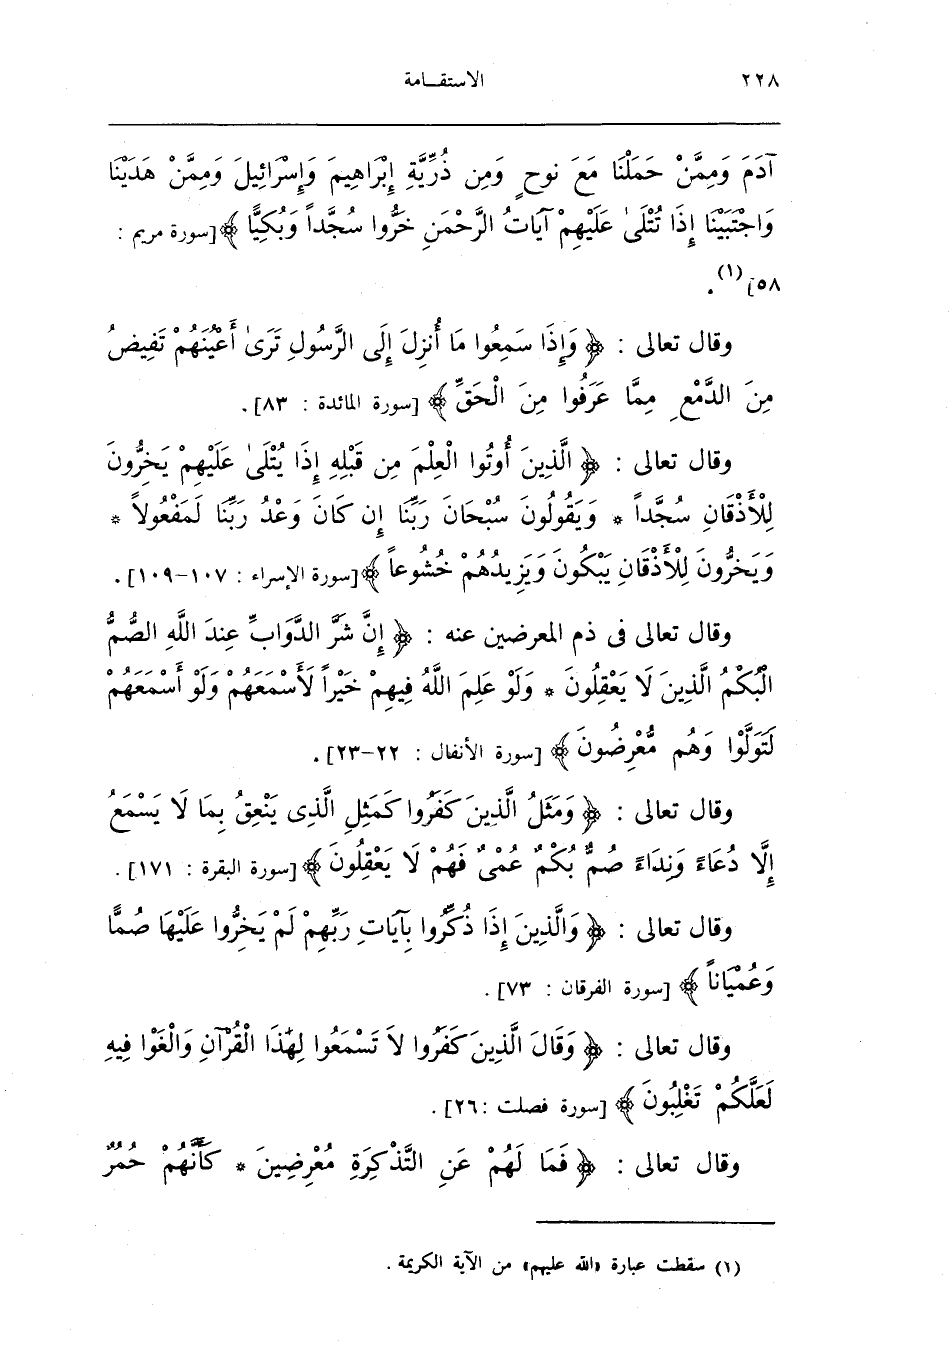 ٢٢٨ الاستقـامة
آدَمَ وَمِمَّنْ حَمَلْنَا مَعَ نوحٍ وَمِن ذُرِّيَّةِ إِبْرَاهِيمَ وَإِسْرَائِيلَ وَمِمَّنْ هَدَيْنَا
وَاجْتَبَيْنَا إِذَا تُتْلَىٰ عَلَيْهِمْ آيَاتُ الرَّحْمَنِ خَرُّوا سُجَّداً وَبُكِيًّا ﴾ [سورة مريم :
٥٨] (١) .
وقال تعالى : ﴿ وَإِذَا سَمِعُوا مَا أُنزِلَ إِلَى الرَّسُولِ تَرَىٰ أَعْيُنَهُمْ تَفِيضُ
مِنَ الدَّمْعِ مِمَّا عَرَفُوا مِنَ الْحَقِّ ﴾ [سورة المائدة : ٨٣] .
وقال تعالى : ﴿ الَّذِينَ أُوتُوا الْعِلْمَ مِن قَبْلِهِ إِذَا يُتْلَىٰ عَلَيْهِمْ يَخِرُّونَ
لِلْأَذْقَانِ سُجَّداً * وَيَقُولُونَ سُبْحَانَ رَبِّنَا إِن كَانَ وَعْدُ رَبِّنَا لَمَفْعُولاً *
وَيَخِرُّونَ لِلْأَذْقَانِ يَبْكُونَ وَيَزِيدُهُمْ خُشُوعاً ﴾ [سورة الإسراء : ١٠٧-١٠٩] .
وقال تعالى فى ذم المعرضين عنه : ﴿ إِنَّ شَرَّ الدَّوَابِّ عِندَ اللَّهِ الصُّمُّ
الْبُكْمُ الَّذِينَ لَا يَعْقِلُونَ * وَلَوْ عَلِمَ اللَّهُ فِيهِمْ خَيْراً لَأَسْمَعَهُمْ وَلَوْ أَسْمَعَهُمْ
لَتَوَلَّوْا وَهُم مُّعْرِضُونَ ﴾ [سورة الأنفال : ٢٢-٢٣] .
وقال تعالى : ﴿ وَمَثَلُ الَّذِينَ كَفَرُوا كَمَثَلِ الَّذِى يَنْعِقُ بِمَا لَا يَسْمَعُ
إِلَّا دُعَاءً وَنِدَاءً صُمٌّ بُكْمٌ عُمْىٌ فَهُمْ لَا يَعْقِلُونَ ﴾ [سورة البقرة : ١٧١] .
وقال تعالى : ﴿ وَالَّذِينَ إِذَا ذُكِّرُوا بِآيَاتِ رَبِّهِمْ لَمْ يَخِرُّوا عَلَيْهَا صُمًّا
وَعُمْيَاناً ﴾ [سورة الفرقان : ٧٣] .
وقال تعالى : ﴿ وَقَالَ الَّذِينَ كَفَرُوا لاَ تَسْمَعُوا لِهَٰذَا الْقُرْآنِ وَالْغَوْا فِيهِ
لَعَلَّكُمْ تَغْلِبُونَ ﴾ [سورة فصلت :٢٦] .
وقال تعالى : ﴿ فَمَا لَهُمْ عَنِ التَّذْكِرَةِ مُعْرِضِينَ * كَأَنَّهُمْ حُمُرٌ
(١) سقطت عبارة «الله عليهم» من الآية الكريمة .